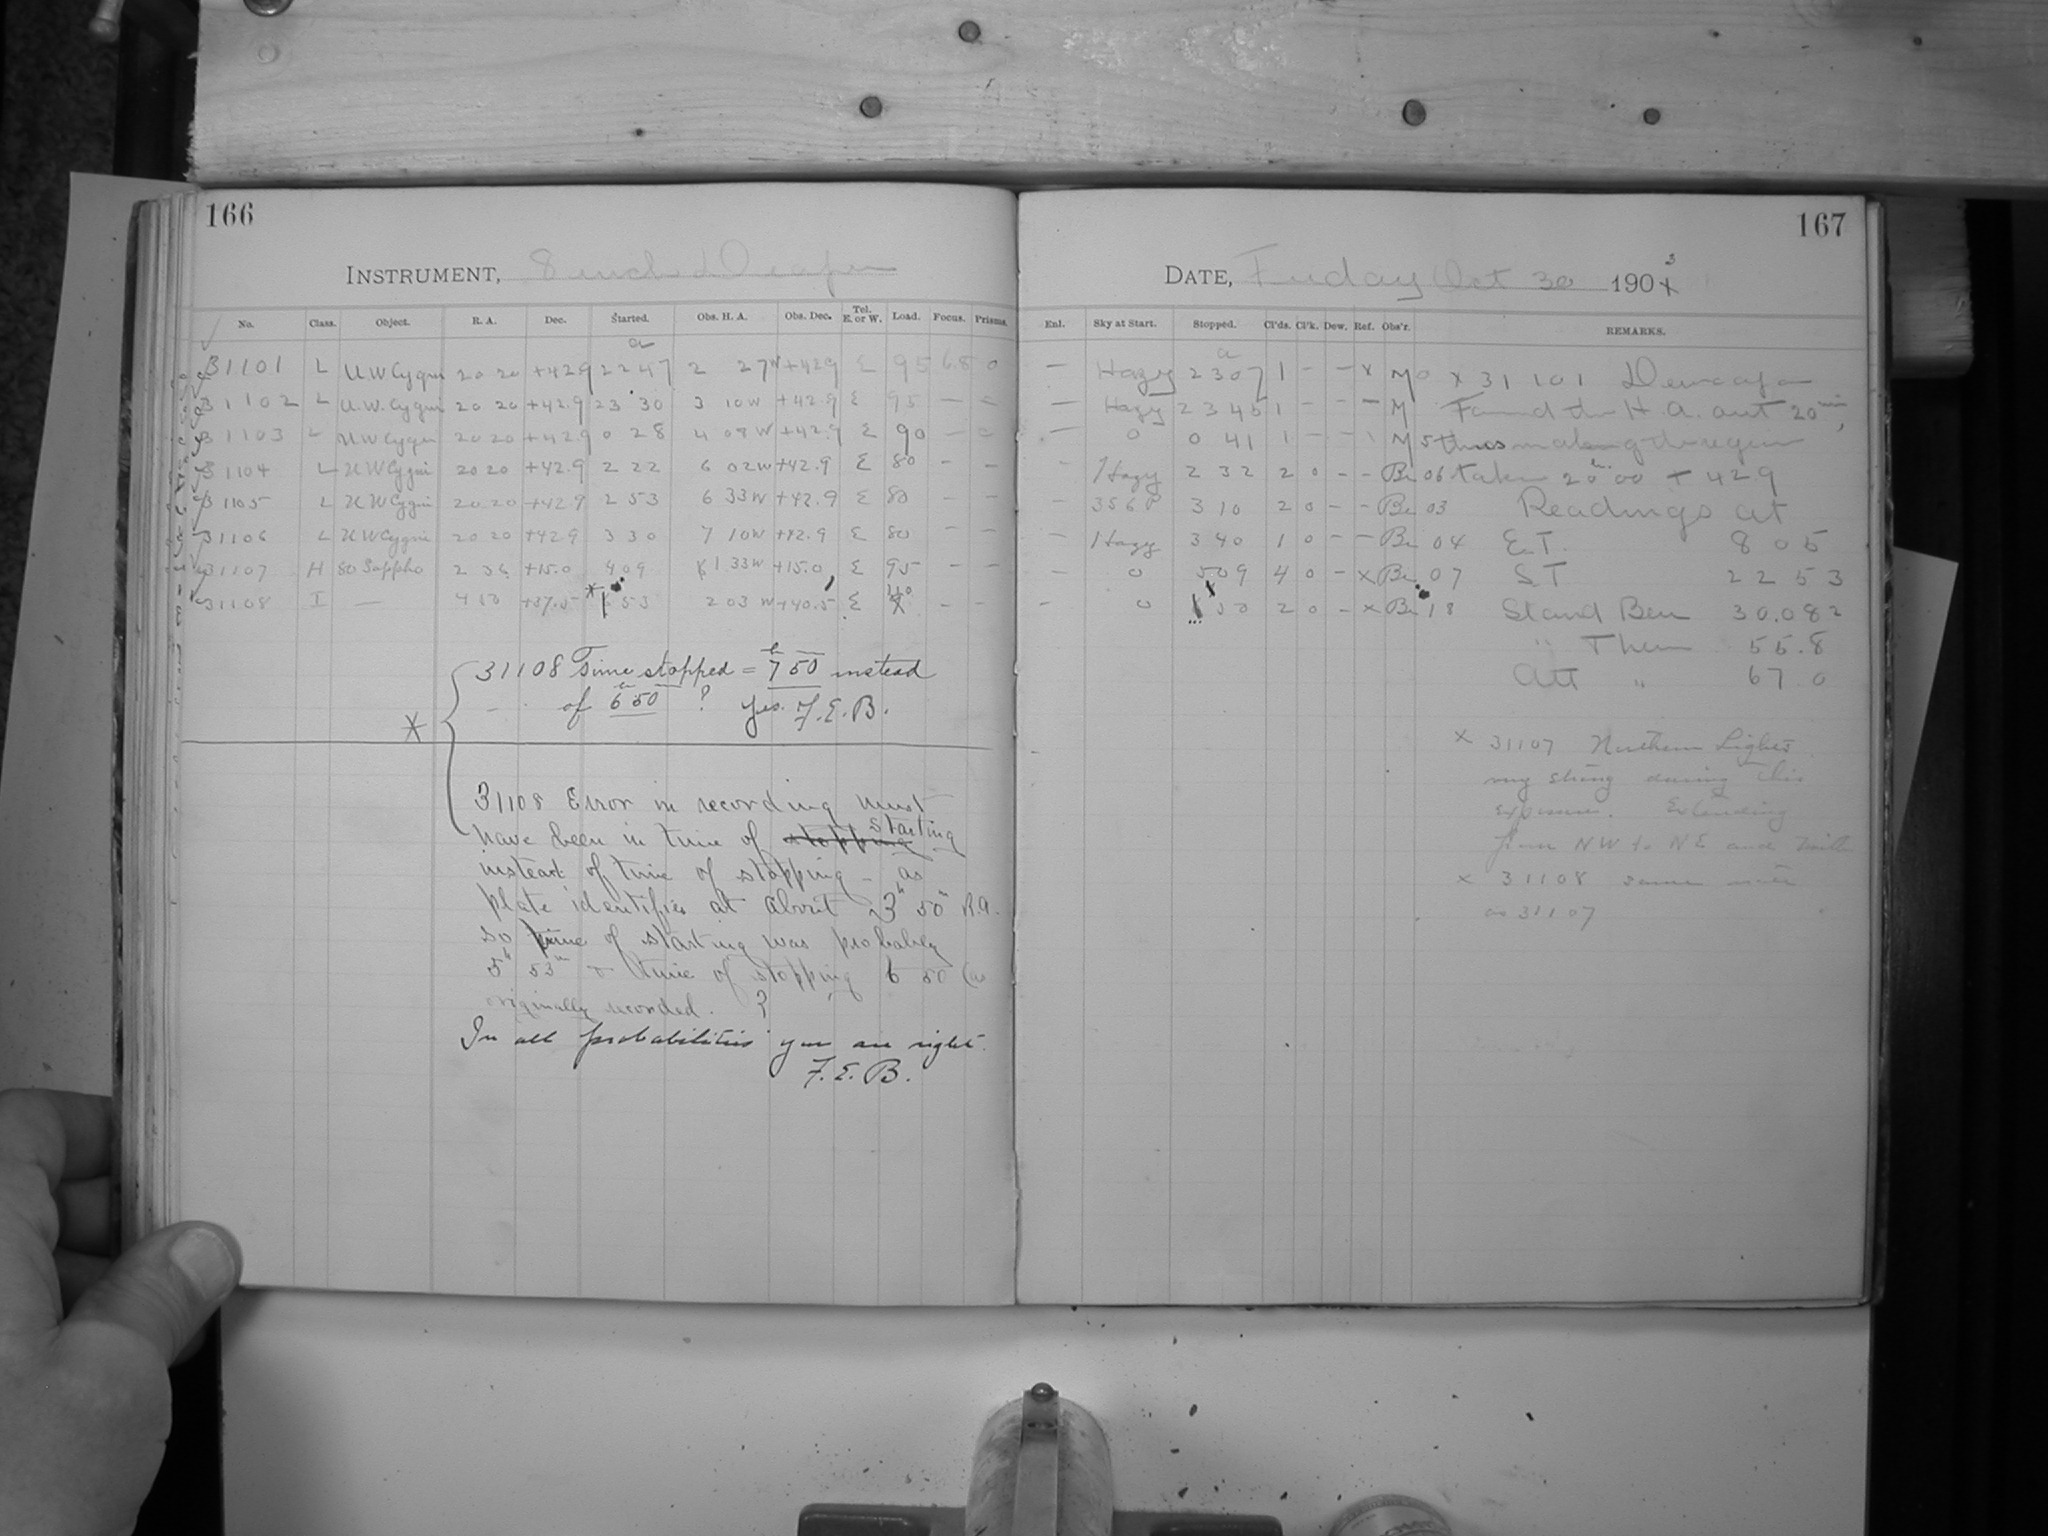 166
INSTRUMENT, 8 inch Draper
No. Class. Object. R. A. Dec. Started. Obs. H. A. Obs. Dec. Tel. E. or W. Load. Focus. Prisms.
31101 L U W Cygni 20 20 +42.9 22 47 2 27 W +42.9 E 95 6.8 0
31102 L U. W. Cygni 20 20 +42.9 23 30 3 10 W +42.9 E 95 - -
31103 L U W Cygni 20 20 +42.9 0 28 4 08 W +42.9 E 90 - -
31104 L U W Cygni 20 20 +42.9 2 22 6 02 W +42.9 E 80 - -
31105 L U W Cygni 20 20 +42.9 2 53 6 33 W +42.9 E 80 - -
31106 L U W Cygni 20 20 +42.9 3 30 7 10 W +42.9 E 80 - -
31107 H 80 Sappho 2 36 +15.0 4 09 1 33 W +15.0 E 95 - -
31108 I — +37.5 53 2 03 W +40.5 E - -
31108 Time stopped = 7 50 instead
of 6 50 ? Yes. F. E. B.
*
31108 Error in recording must
have been in time of stopping starting
instead of time of stopping - as
plate identifies at about 3h 50m R.A.
so time of starting was probably
5h 53m & time of stopping 6 50 (as
originally recorded. ?
In all probabilities you are right.
F. E. B.
167
DATE, Friday Oct 30 1903
Enl. Sky at Start. Stopped. Cl'ds. Cl'k. Dew. Ref. Obs'r. REMARKS.
— Hazy 23 07 1 - - x M 0 x 31101 Dew cap on
— Hazy 23 45 1 - - - M Found the H. A. out 20 min,
— 0 0 41 1 - - M 5 thus making the region
- Hazy 2 32 2 0 - - Be 06 taken 20h 00 + 42.9
- 3 10 2 0 - - Be 03 Readings at
- Hazy 3 40 1 0 - - Be 04 E.T. 8 05
- 0 5 09 4 0 - x Be 07 S T 22 53
- 0 50 2 0 - x Be 18 Stand Bar 30.082
" Ther 55.8
Att " 67.0
x 31107 Northern Lights
very strong during this
exposure. Extending
from NW to NE and
x 31108 same note
as 31107